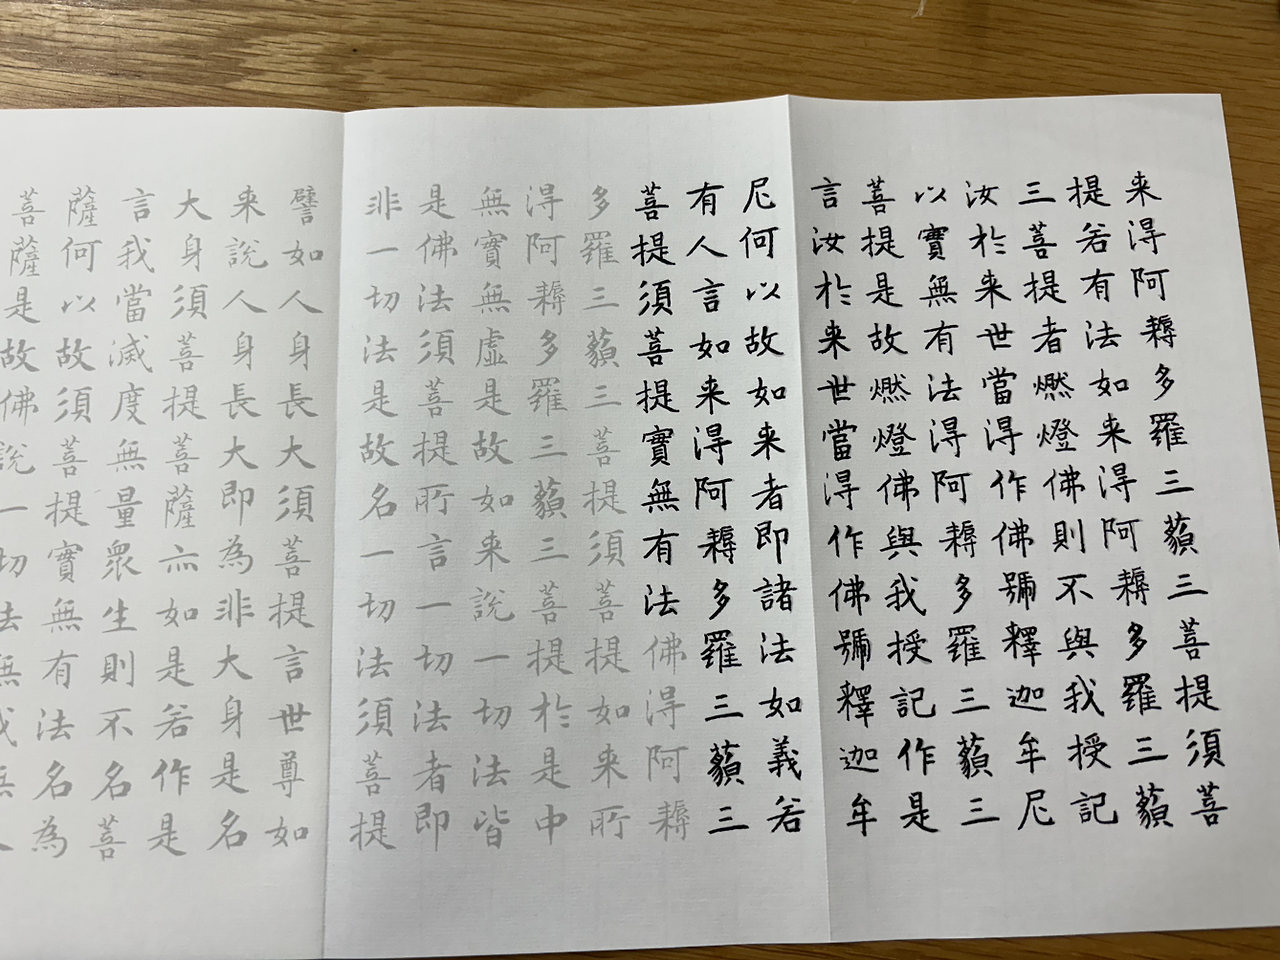 来得阿耨多羅三藐三菩提須菩
提若有法如来得阿耨多羅三藐
三菩提者燃燈佛則不與我授記
汝於来世當得作佛號釋迦牟尼
以實無有法得阿耨多羅三藐三
菩提是故燃燈佛與我授記作是
言汝於来世當得作佛號釋迦牟
尼何以故如来者即諸法如義若
有人言如来得阿耨多羅三藐三
菩提須菩提實無有法佛得阿耨
多羅三藐三菩提須菩提如来所
得阿耨多羅三藐三菩提於是中
無實無虛是故如来說一切法皆
是佛法須菩提所言一切法者即
非一切法是故名一切法須菩提
譬如人身長大須菩提言世尊如
来說人身長大即為非大身是名
大身須菩提菩薩亦如是若作是
言我當滅度無量眾生則不名菩
薩何以故須菩提實無有法名為
菩薩是故佛說一切法無我無人